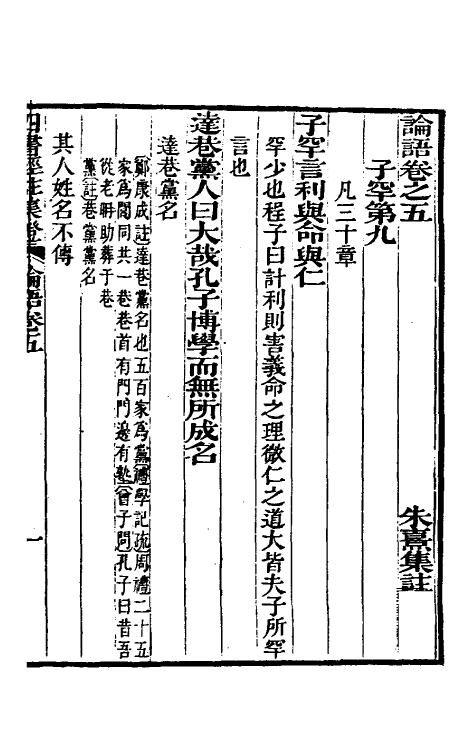 論語卷之五
朱熹集註
子罕第九
凡三十章
子罕言利與命與仁
罕少也程子曰計利則害義命之理微仁之道大皆夫子所罕
言也
達巷黨人曰大哉孔子博學而無所成名
達巷黨名
鄭康成註達巷黨名也五百家爲黨禮學記疏周禮二十五
家爲閭同共一巷巷首有門門邊有塾曾子問孔子曰昔吾
從老聃助葬于巷
黨註巷黨黨名
其人姓名不傳
四書經註集證 論語卷五 一